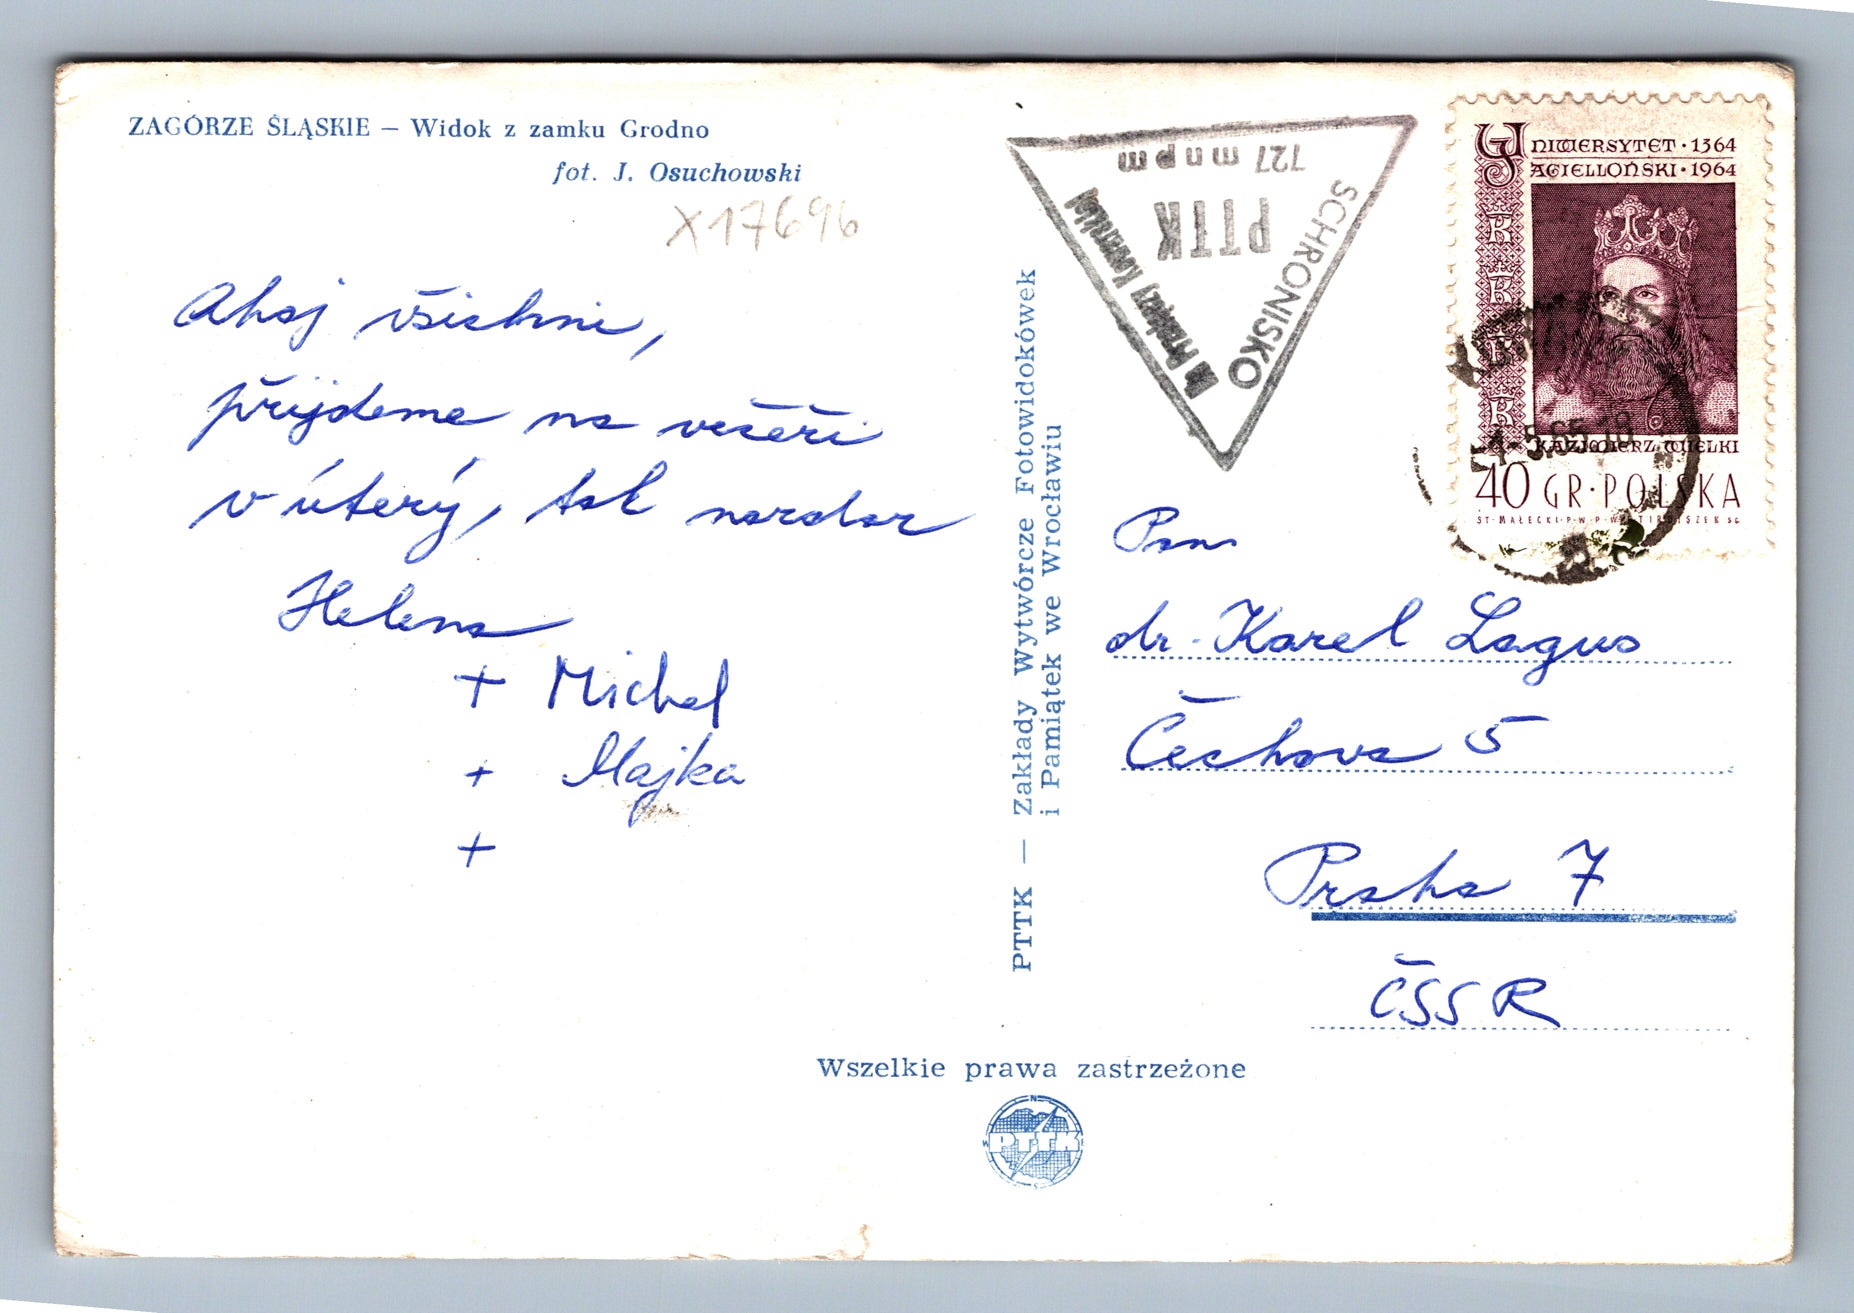 ZAGÓRZE ŚLĄSKIE — Widok z zamku Grodno
fot. J. Osuchowski
X17696
Ahoj všichni,
přijdeme na večeři
v úterý, tak nazdar
Helena
+ Michal
+ Majka
+
PTTK — Zakłady Wytwórcze Fotowidokówek
i Pamiątek we Wrocławiu
727 m n p m
PTTK
SCHRONISKO
na Przełęczy
UNIWERSYTET · 1364
JAGIELLOŃSKI · 1964
KAZIMIERZ WIELKI
40 GR · POLSKA
ST· MAŁECKI · P·W·P·W·
65.18
Pan
dr. Karel Lagus
Čechova 5
Praha 7
ČSSR
Wszelkie prawa zastrzeżone
PTTK